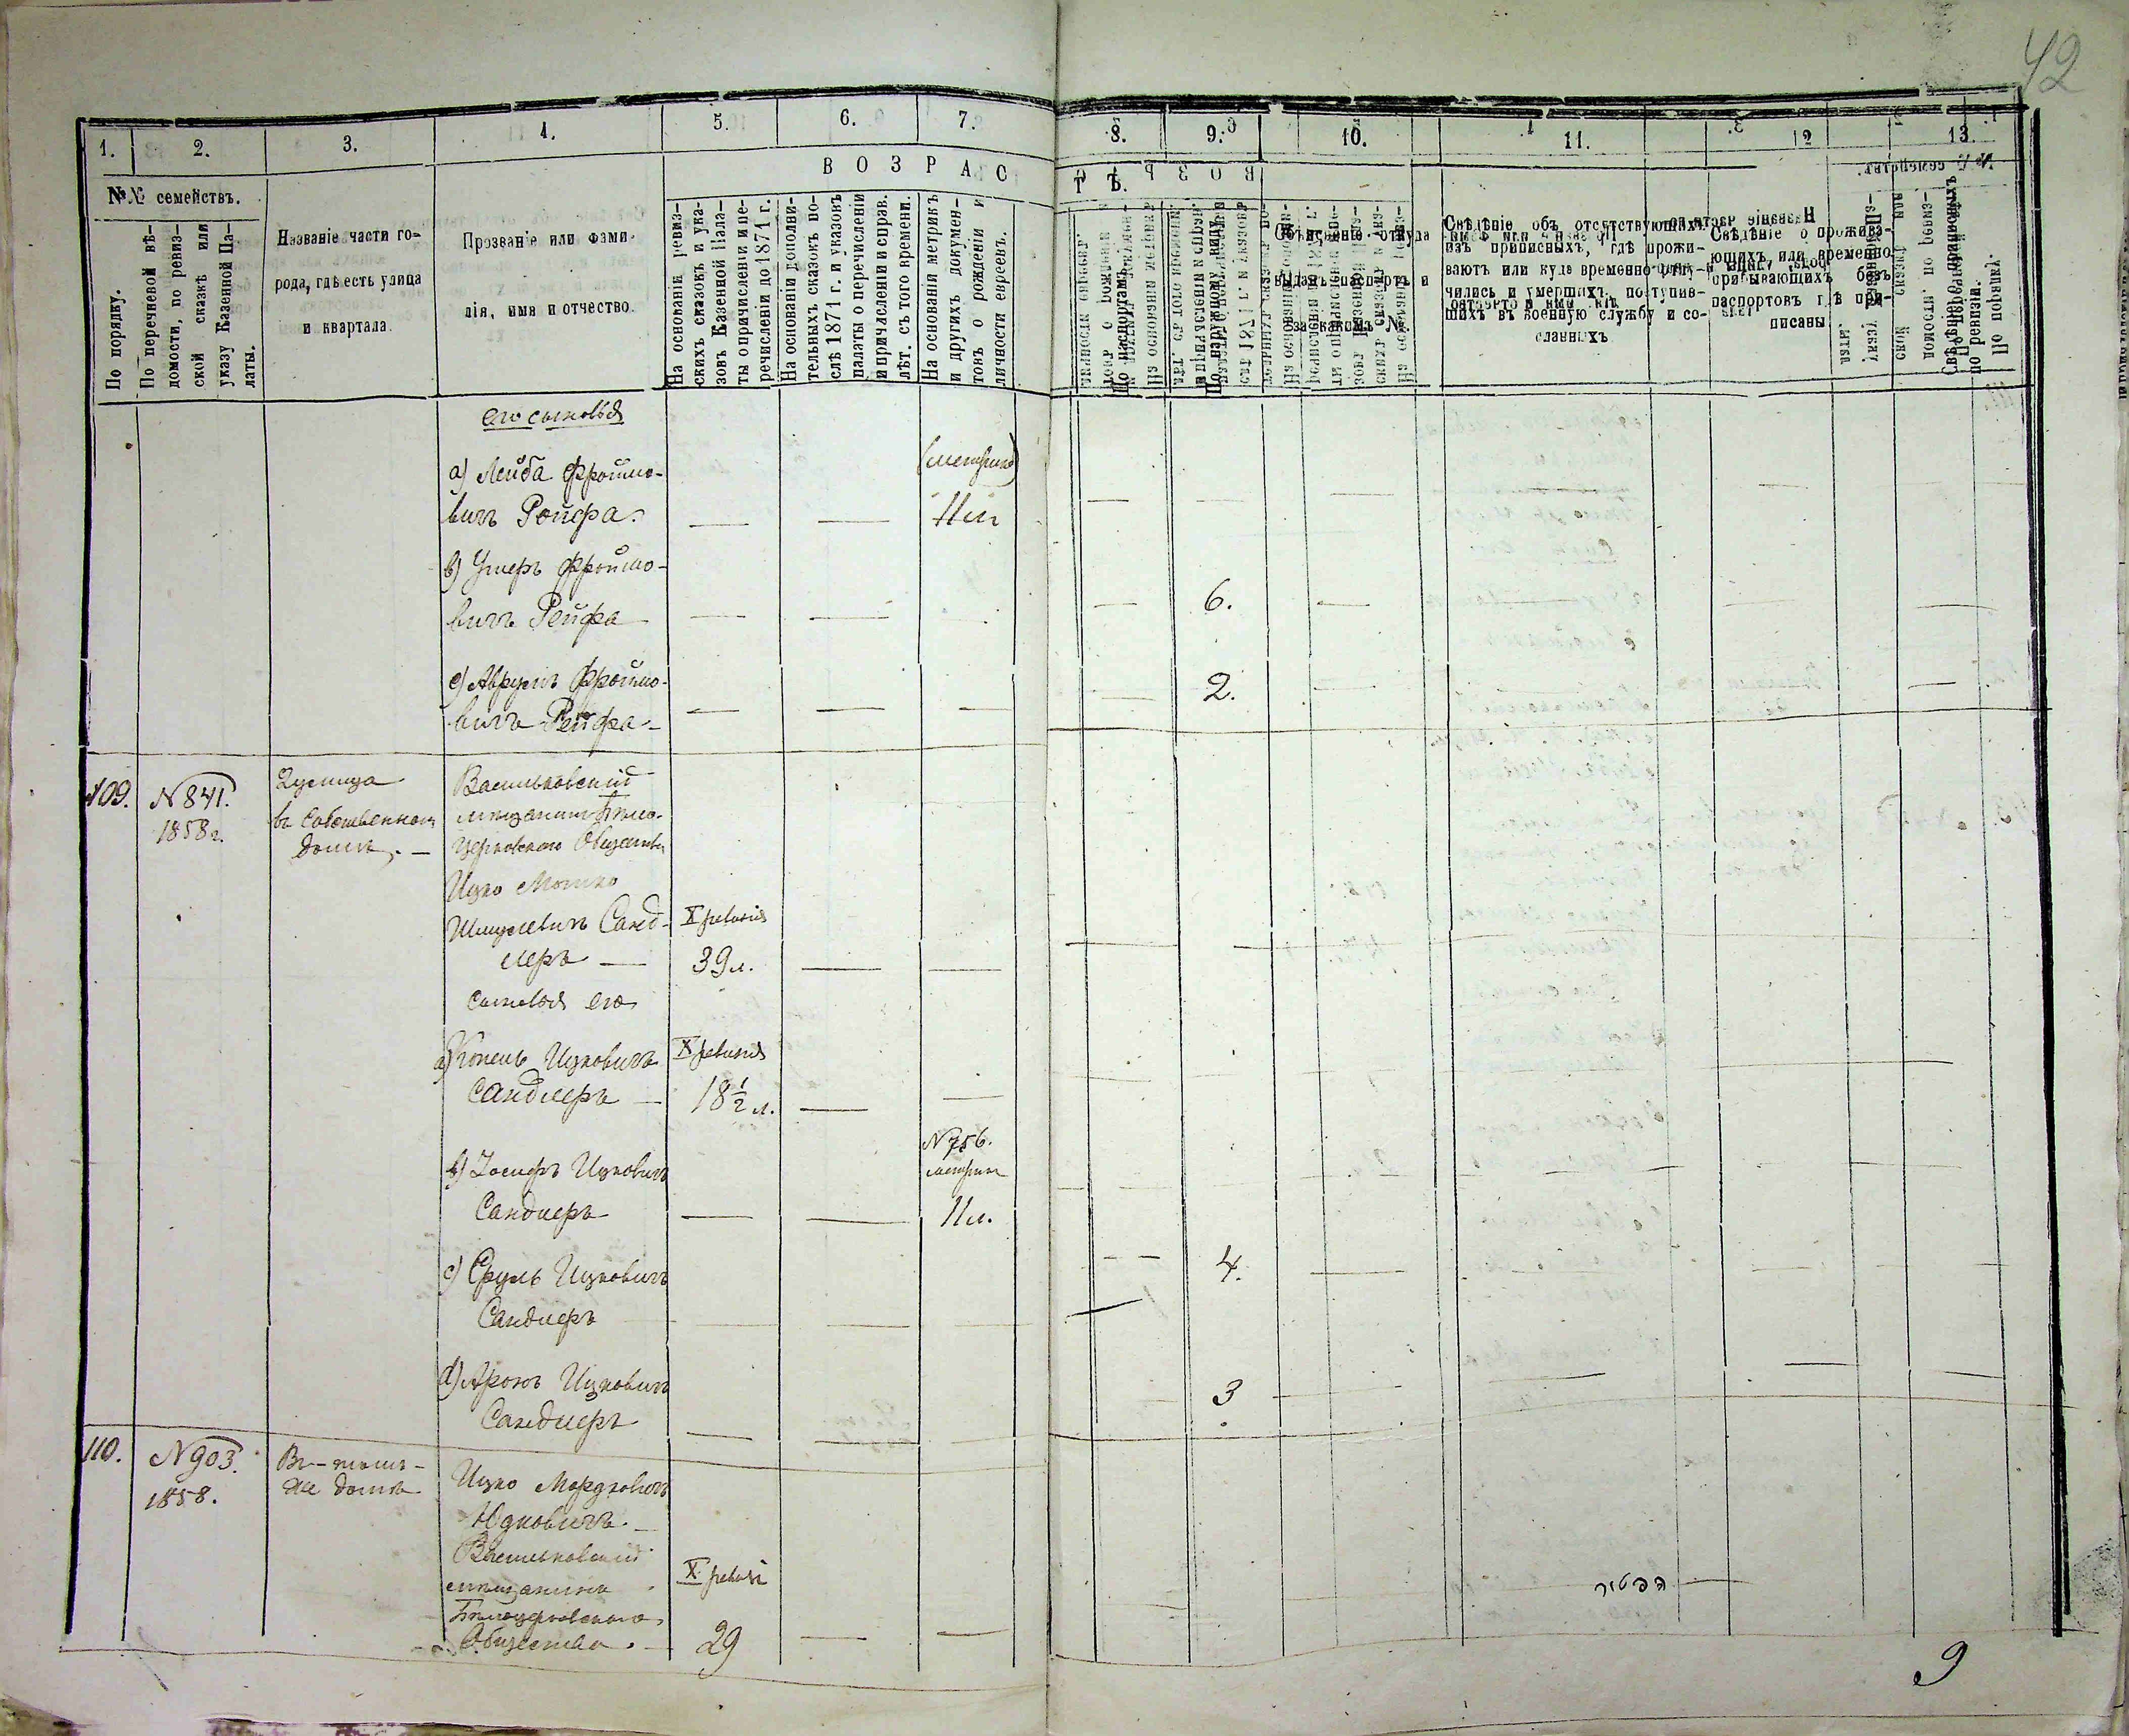 42
1.
2.
3.
4.
5.
6.
7.
8.
9.
10.
11.
12
13.
ВОЗРАС
ТЪ.
№№ семействъ.
По порядку.
По перечневой вѣ-
домости, по ревиз-
ской сказкѣ или
указу Казенной Па-
латы.
Названіе части го-
рода, гдѣ есть улица
и квартала.
Прозваніе или фами-
лія, имя и отчество.
На основаніи ревиз-
скихъ сказокъ и ука-
зовъ Казенной Пала-
ты о причисленіи и пе-
речисленіи до 1871 г.
На основаніи дополни-
тельныхъ сказокъ по-
слѣ 1871 г. и указовъ
палаты о перечисленіи
и причисленіи и справ.
лѣт. съ того времени.
На основаніи метрикъ
и другихъ докумен-
товъ о рожденіи и
личности евреевъ.
По паспортамъ.
По наружному виду
Объясненіе откуда
выданъ паспортъ и
за какимъ №.
Свѣдѣніе объ отсутствующихъ
изъ приписныхъ, гдѣ прожи-
ваютъ или куда временно отлу-
чились и умершихъ, поступив-
шихъ въ военную службу и со-
сланныхъ
Свѣдѣніе о прожива-
ющихъ или временно
прибывающихъ безъ
паспортовъ гдѣ при-
писаны
по ревизіи.
его сыновья
а) Лейба Фроймо-
вичъ Ройфа.
11 л
в) Ушеръ Фроймо-
вичъ Рейфа
6.
с) Аврумъ Фроймо-
вичъ Рейфа
2.
109.
№ 841.
1858 г.
въ собственномъ
домѣ.
Васильковскій
мѣщанинъ Бѣло-
церковскаго Общества
Ицко Мошко
Шмулевичъ Санд-
леръ
X ревизія
39 л.
сыновья его
а) Копель Ицковичъ
Сандлеръ
X ревизія
18½ л.
в) Іосифъ Ицковичъ
Сандлеръ
№ 756.
метрики
11 л.
с) Сруль Ицковичъ
Сандлеръ
4.
d) Аронъ Ицковичъ
Сандлеръ
3
110.
№ 903.
1858.
Въ томъ-
же домѣ
Ицко Мордковичъ
Юдковичъ.
Васильковскій
мѣщанинъ
Бѣлоцерковскаго
Общества.
X ревизі
29
נפטיר
9